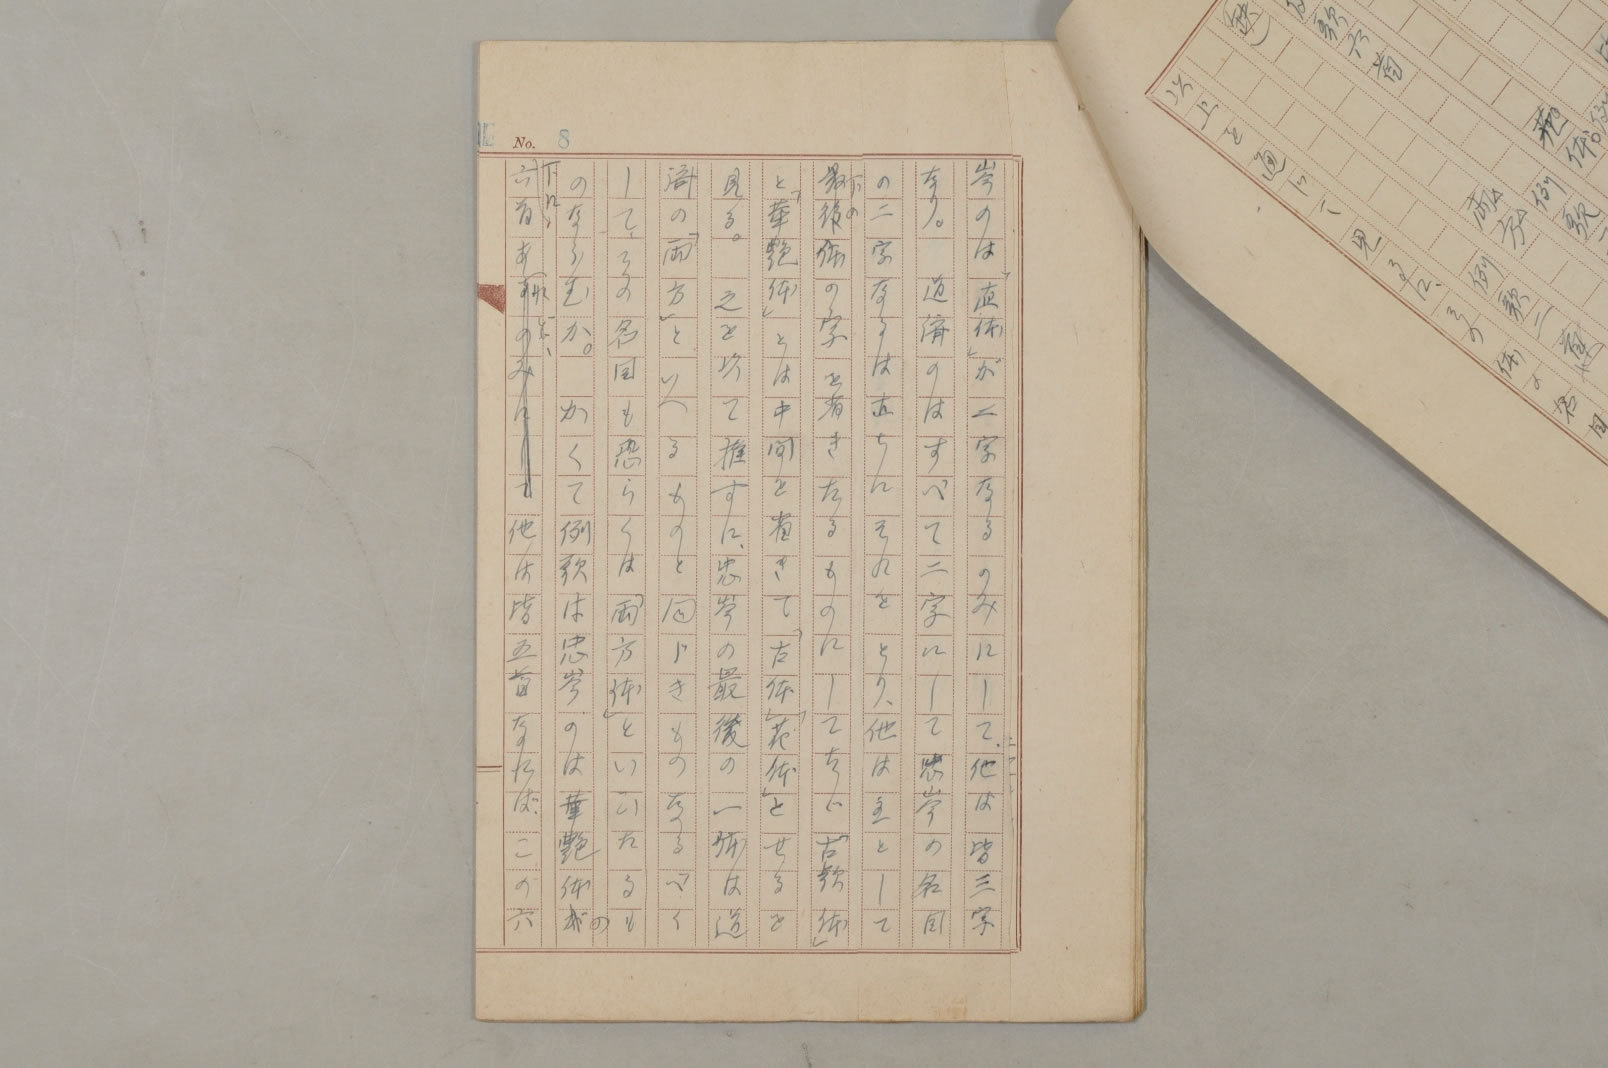 No. 8
岑のは「直体」が二字なるのみにして、他は皆三字
なり。 道済のはすべて二字にして忠岑の名目
の二字なるは直ちにそれをとり、他は主として
下の
最後体の字を省きたるものにしてたゞ「古歌体」
と「華艶体」とは中間を省きて「古体」「花体」とせるを
見る。 之を以て推すに、忠岑の最後の一体は道
済の「両方」といへるものと同じきものなるべく
して、その名目も恐らくは「両方体」といひたるも
のならむか。 かくて例歌は忠岑のは華艶体の
六首あ 他は皆五首なれば、この六
以上を通じて見るに、その体の名目
例歌六首
例歌二首